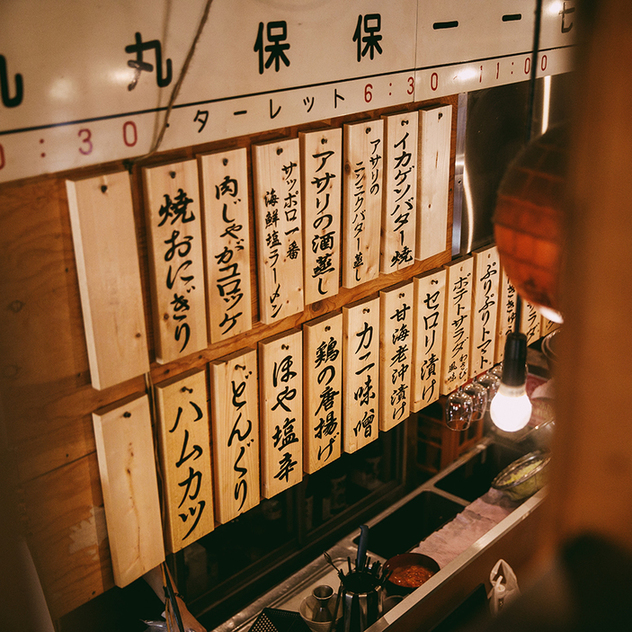 丸 保 保 一 一 七
0:30 ターレット 6:30 - 11:00
焼おにぎり
肉じゃがコロッケ
サッポロ一番
海鮮塩ラーメン
アサリの酒蒸し
アサリの
ニンニクバター蒸し
イカゲソバター焼
ハムカツ
どんぐり
ほや塩辛
鶏の唐揚げ
カニ味噌
甘海老沖漬け
セロリ漬け
ポテトサラダ
ぷりぷりトマト